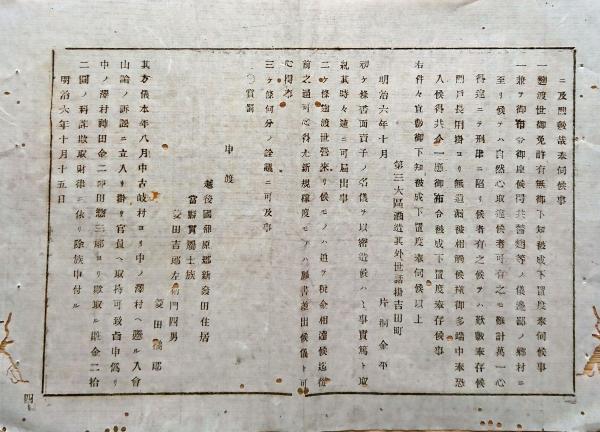 ニ及問敷哉奉伺候事
一麹渡世御免許有無御下知被成下置度奉伺候事
一兼ヲ御布令御座候得共酱麹等ノ儀邊鄙ノ郷村ニ
至リ候テハ自然心取違候者可有之モ難計萬一心
得違ニテ刑律ニ陷リ候者有之候テハ歎敷奉存候
間戸長用掛ヨリ無遺漏被相觸候様御多端中奉恐
入候得共今一應御布令被成下置度奉存候事
右件々宜敷御下知被成下置度奉伺候以上
第三大區酒造其外世話掛吉田町
明治六年十月 片桐金平
初ケ條書面賣子ノ名儀ヲ以密造候ハヽ事實篤ト取
糺其時々速ニ可届出事
二ケ條麹渡世營來リ候モノハ追テ税金相達候迄後
前之通可心得尤新規稼度モノハ願書差出候儀ト可
心得事
三ケ條何分ノ詮議ニ可及事
〇賞罰
申渡
越後國蒲原郡新發田住居
當縣貫屬士族
菱田吉郎左衛門四男
菱田 郎
其方儀本年八月中古岐村ヨリ中ノ澤村ヘ懸ル入會
山論ノ訴訟ニ立入リ掛リ官員ヘ取持可致旨申僞リ
中ノ澤村神田金二神田 三郎ヨリ欺取ル 金二拾
二圓ノ科詐欺取財律ニ依リ除族申付ル
明治六年十月十五日
四